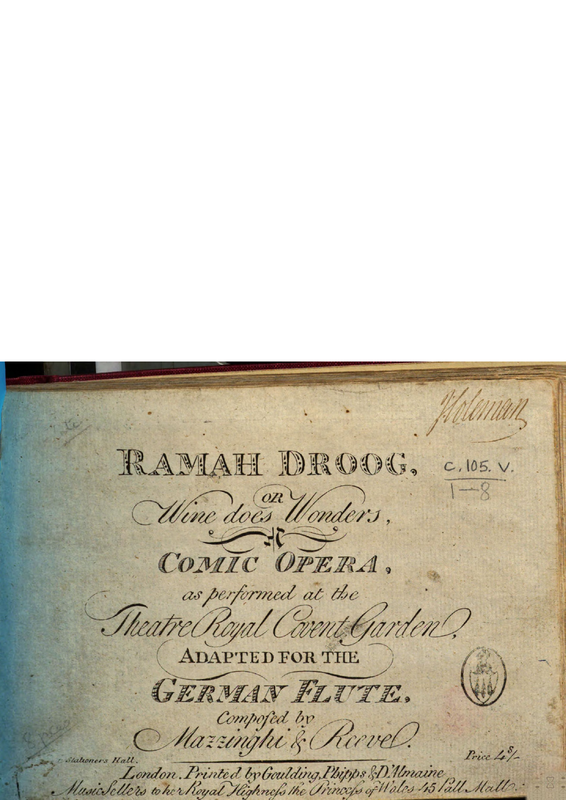 Holeman
RAMAH DROOG,
C.105.V.
1—8
OR
Wine does Wonders,
A
COMIC OPERA,
as performed at the
Theatre Royal Covent Garden.
ADAPTED FOR THE
GERMAN FLUTE,
Composed by
Mazzinghi & Reeve.
Stationers Hall.
Price 4s/-
London, Printed by Goulding, Phipps & D'Almaine
Music Sellers to her Royal Highness the Princess of Wales 45 Pall Mall.